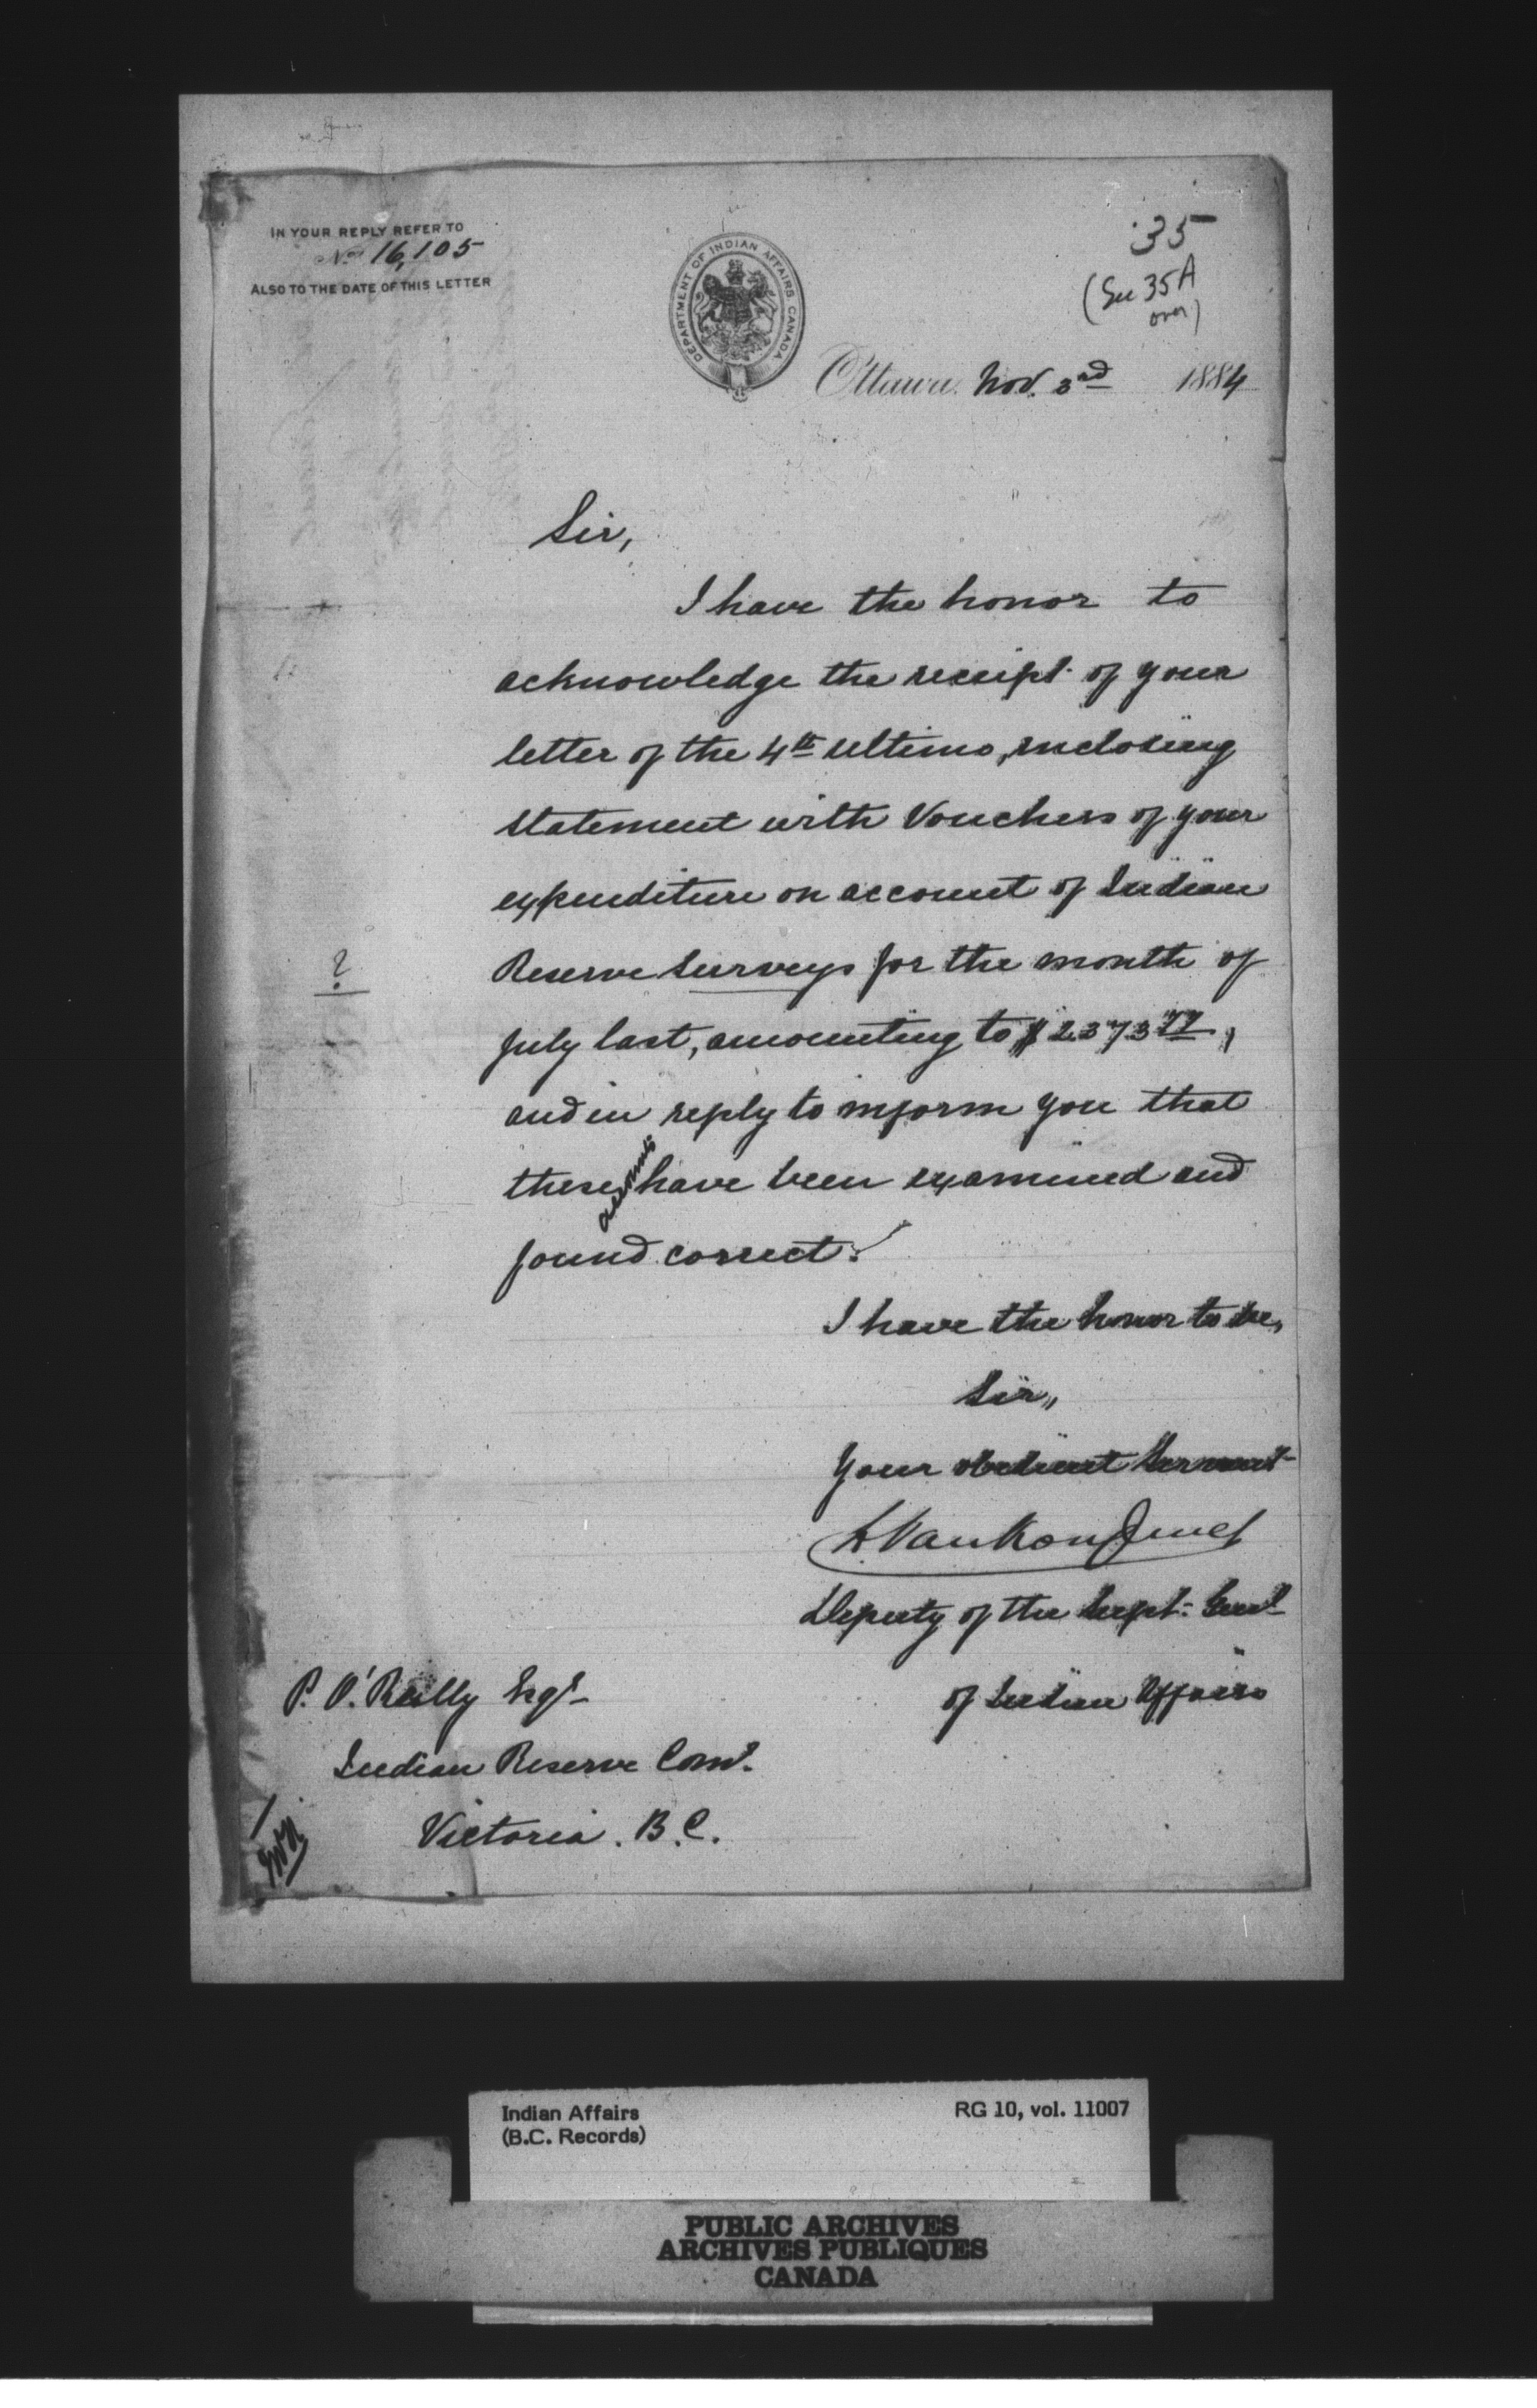 IN YOUR REPLY REFER TO
No 16,105
ALSO TO THE DATE OF THIS LETTER
DEPARTMENT OF INDIAN AFFAIRS CANADA
35
(See 35A
over)
Ottawa. Nov. 3rd 1884
Sir,
I have the honor to
acknowledge the receipt of your
letter of the 4th ultimo, inclosing
statement with Vouchers of your
expenditure on account of Indian
?
Reserve Surveys for the month of
July last, amounting to $2373 77,
and in reply to inform you that
these accounts have been examined and
found correct.
I have the honor to be,
Sir,
Your obedient Servant
L Vankoughnet
Deputy of the Supt: Genl
of Indian Affairs
P. O'Reilly Esqr
Indian Reserve Comr.
Victoria. B.C.
Indian Affairs
(B.C. Records)
RG 10, vol. 11007
PUBLIC ARCHIVES
ARCHIVES PUBLIQUES
CANADA